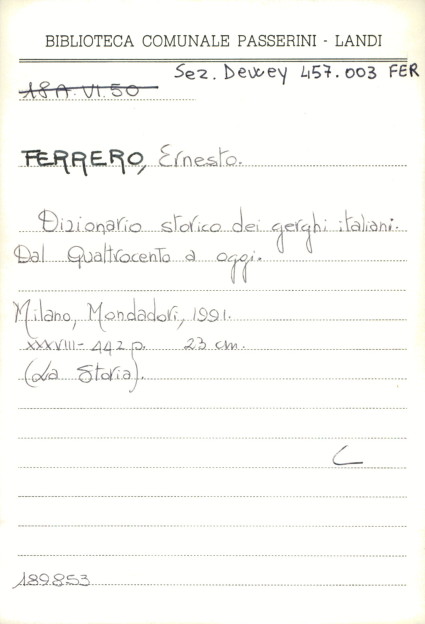 BIBLIOTECA COMUNALE PASSERINI - LANDI
Sez. Dewey 457.003 FER
18A.VI.50
FERRERO, Ernesto.
Dizionario storico dei gerghi italiani.
Dal Quattrocento a oggi.
Milano, Mondadori, 1991.
XXXVIII-442 p. 23 cm.
(La Storia).
C
189853